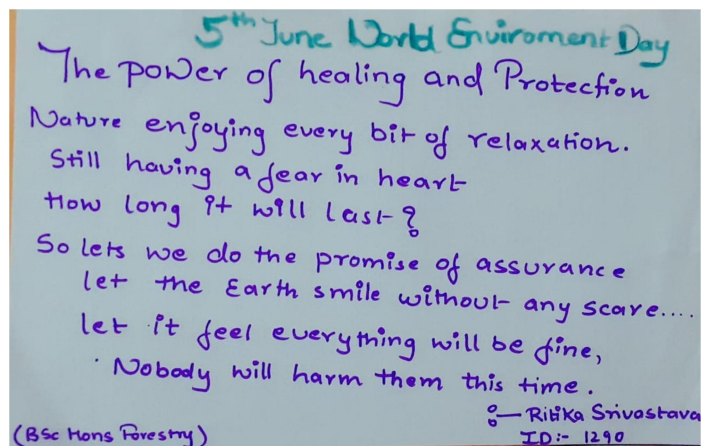 5th June World Enviroment Day
The power of healing and Protection
Nature enjoying every bit of relaxation.
Still having a fear in heart
How long it will last?
So lets we do the promise of assurance
let the Earth smile without any scare....
let it feel everything will be fine,
Nobody will harm them this time.
:- Ritika Srivastava
(BSc Hons Forestry) ID:- 1290